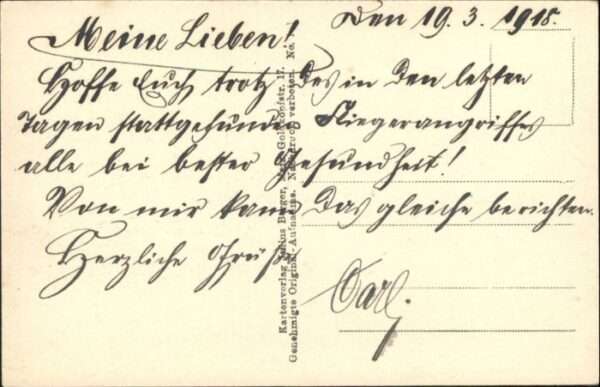 Den 19. 3. 1918.
Meine Lieben!
Hoffe Euch trotz des in den letzten
Tagen stattgefunden Fliegerangriffes
alle bei bester Gesundheit!
Von mir kann das gleiche berichten.
Herzliche Grüße
Carl.
Kartenverlag Julius Berger, 17.
Genehmigte Original-Aufnahme. Nachdruck verboten. No.